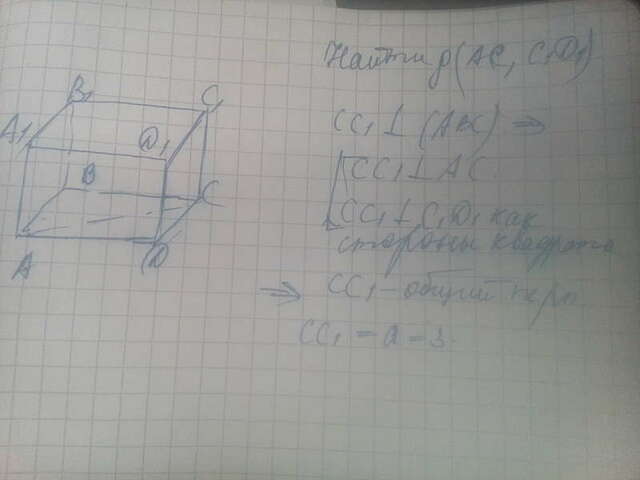 B₁
C₁
A₁
D₁
B
C
A
D
Найти ρ(AC, C₁D₁)
CC₁ ⊥ (ABC) ⇒
CC₁ ⊥ AC
CC₁ ⊥ C₁D₁ как
стороны квадрата
⇒ CC₁ - общий перп
CC₁ = a = 3.